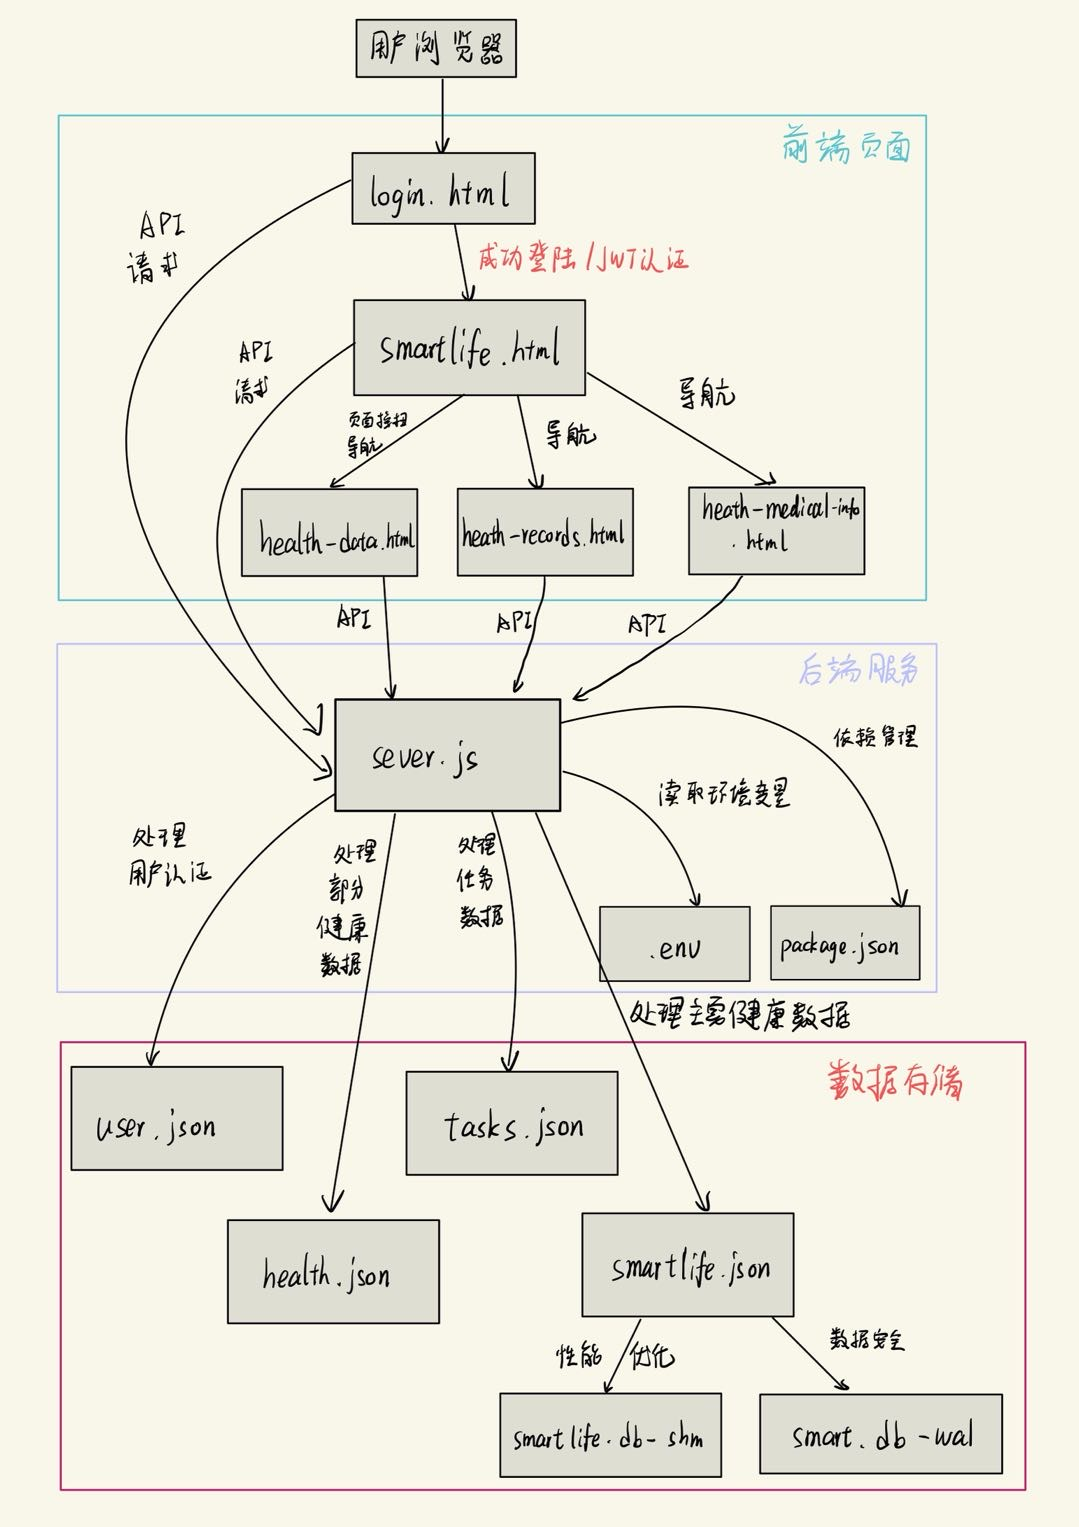 用户浏览器
前端页面
login.html
API
请求
成功登陆/JWT认证
smartlife.html
API
请求
导航
页面按扭
导航
导航
health-data.html
heath-records.html
heath-medical-info
.html
API
API
API
后端服务
sever.js
依赖管理
读取环境变量
处理
用户认证
处理
部分
健康
数据
处理
任务
数据
.env
package.json
处理主要健康数据
数据存储
user.json
tasks.json
health.json
smartlife.json
性能 优化
数据安全
smartlife.db-shm
smart.db-wal